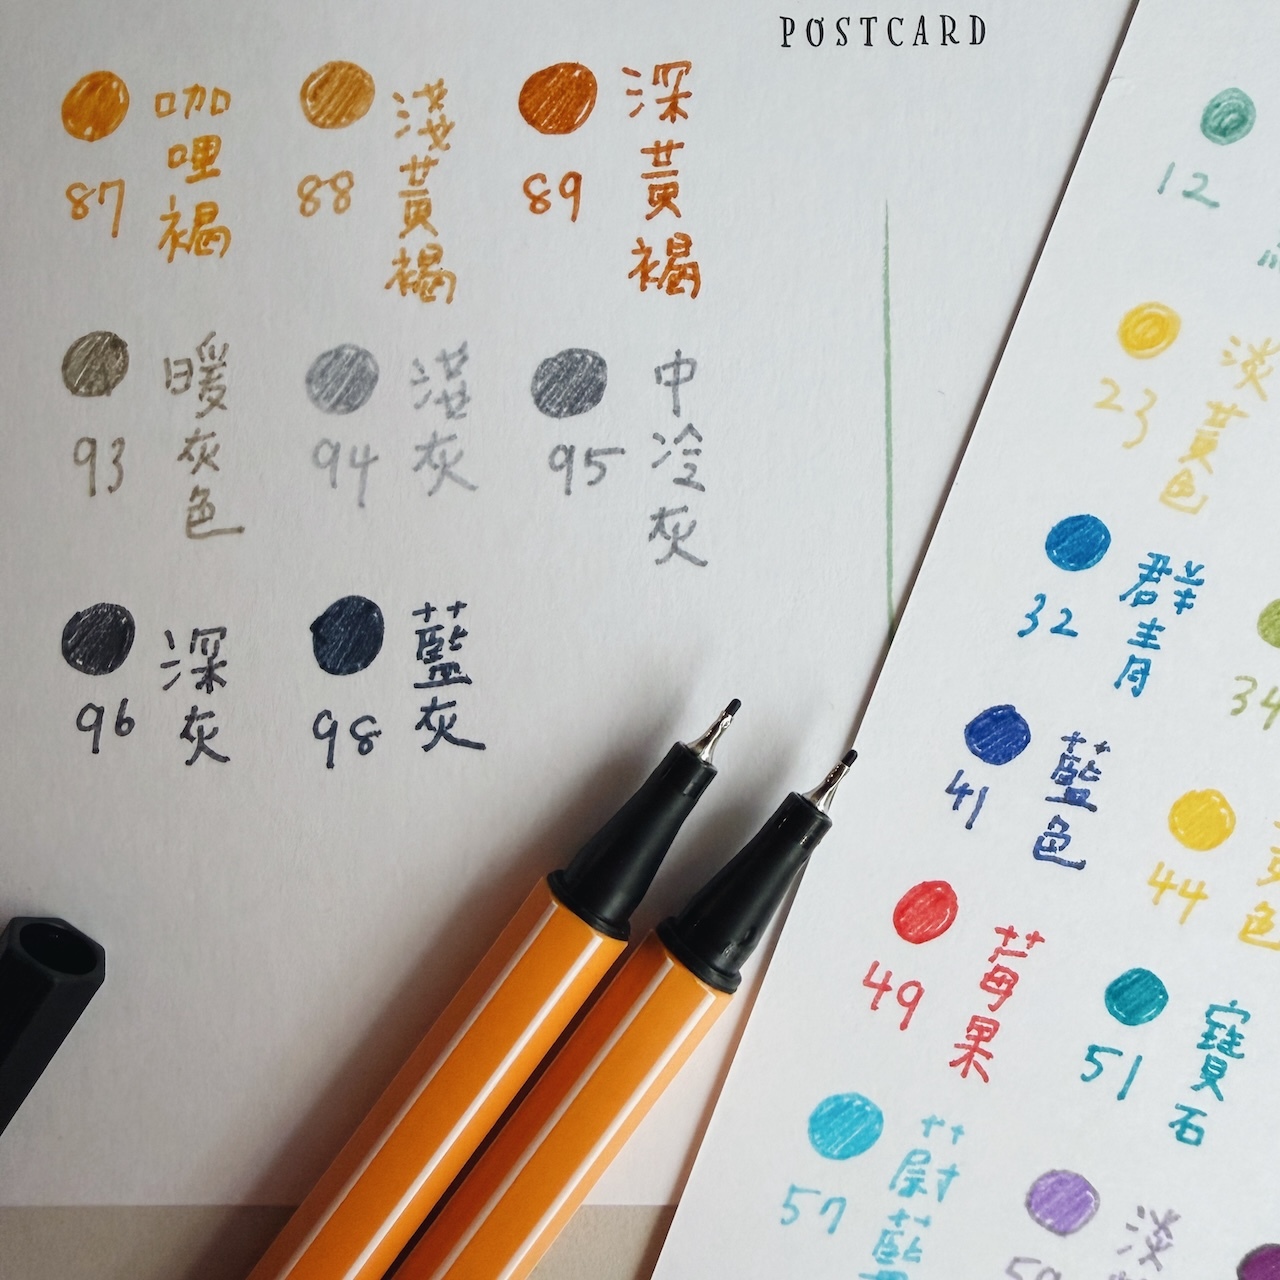 POSTCARD
87 咖哩褐
88 淺黃褐
89 深黃褐
93 暖灰色
94 淺灰
95 中冷灰
96 深灰
98 藍灰
12
23 淡黃色
32 群青
34
41 藍色
44 黃色
49 莓果
51 寶石
57 尉藍
59 淡